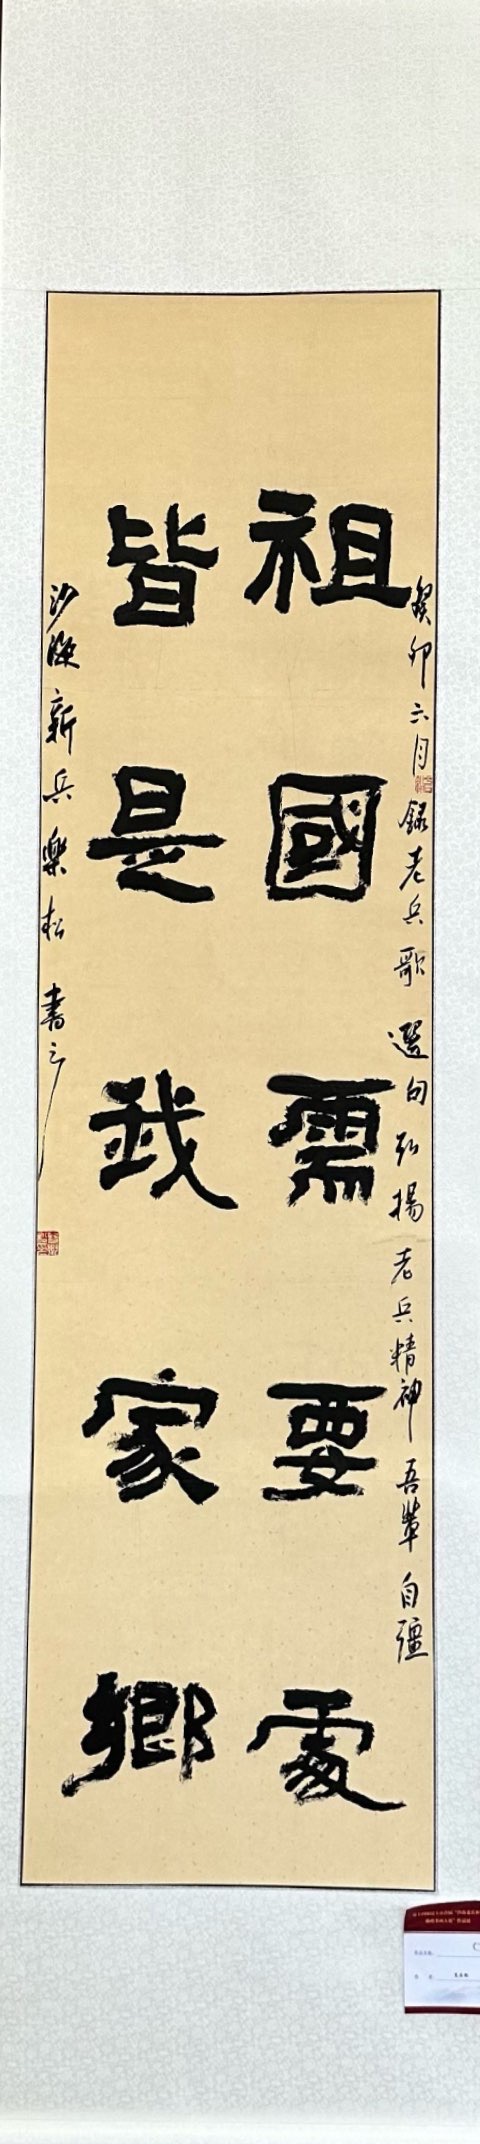 癸卯六月録老兵歌選句弘揚老兵精神吾輩自彊
祖國需要處
皆是我家鄉
沙陂新兵樂松書之